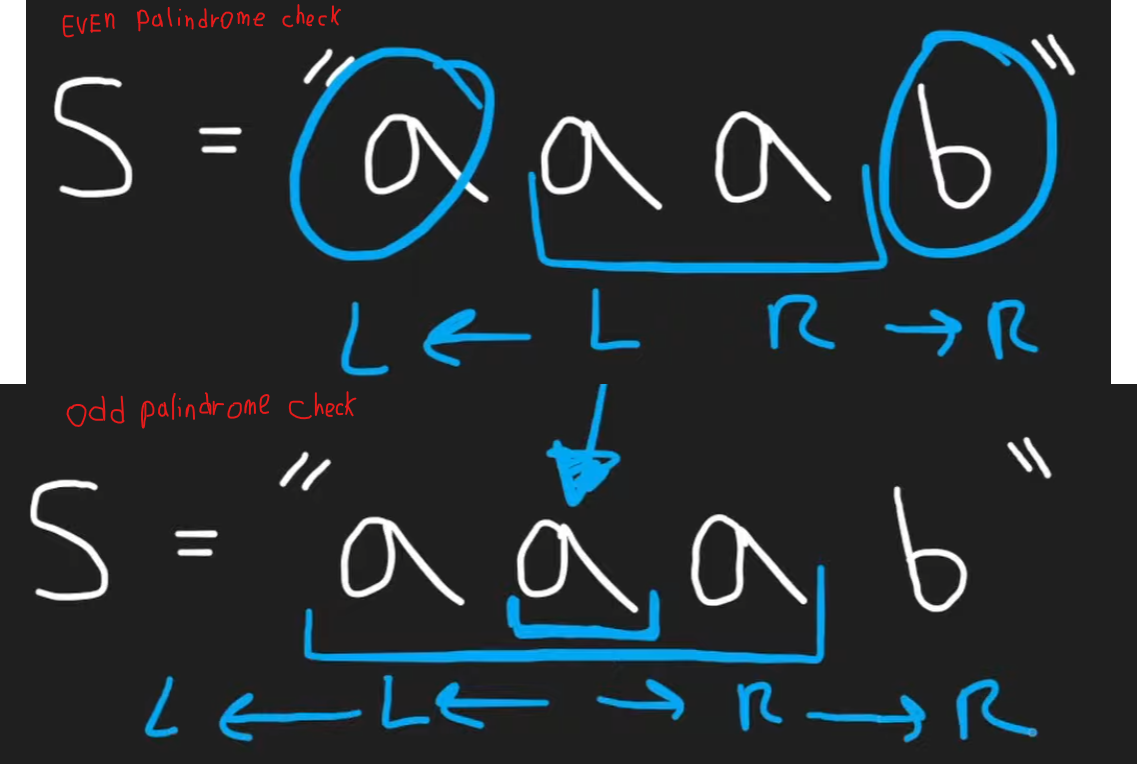 EVEN palindrome check
S = "a a a b"
L ← L R → R
odd palindrome check
S = "a a a b"
L ← L ← → R → R